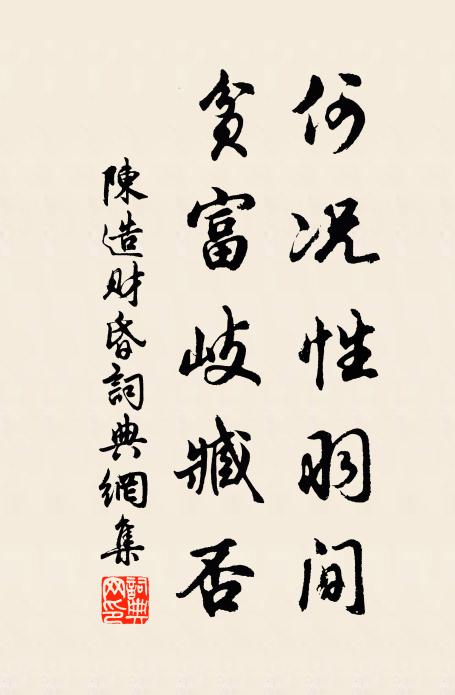 何况性羽间
貧富歧臧否
陳造財昏詞典網集
詞典网印